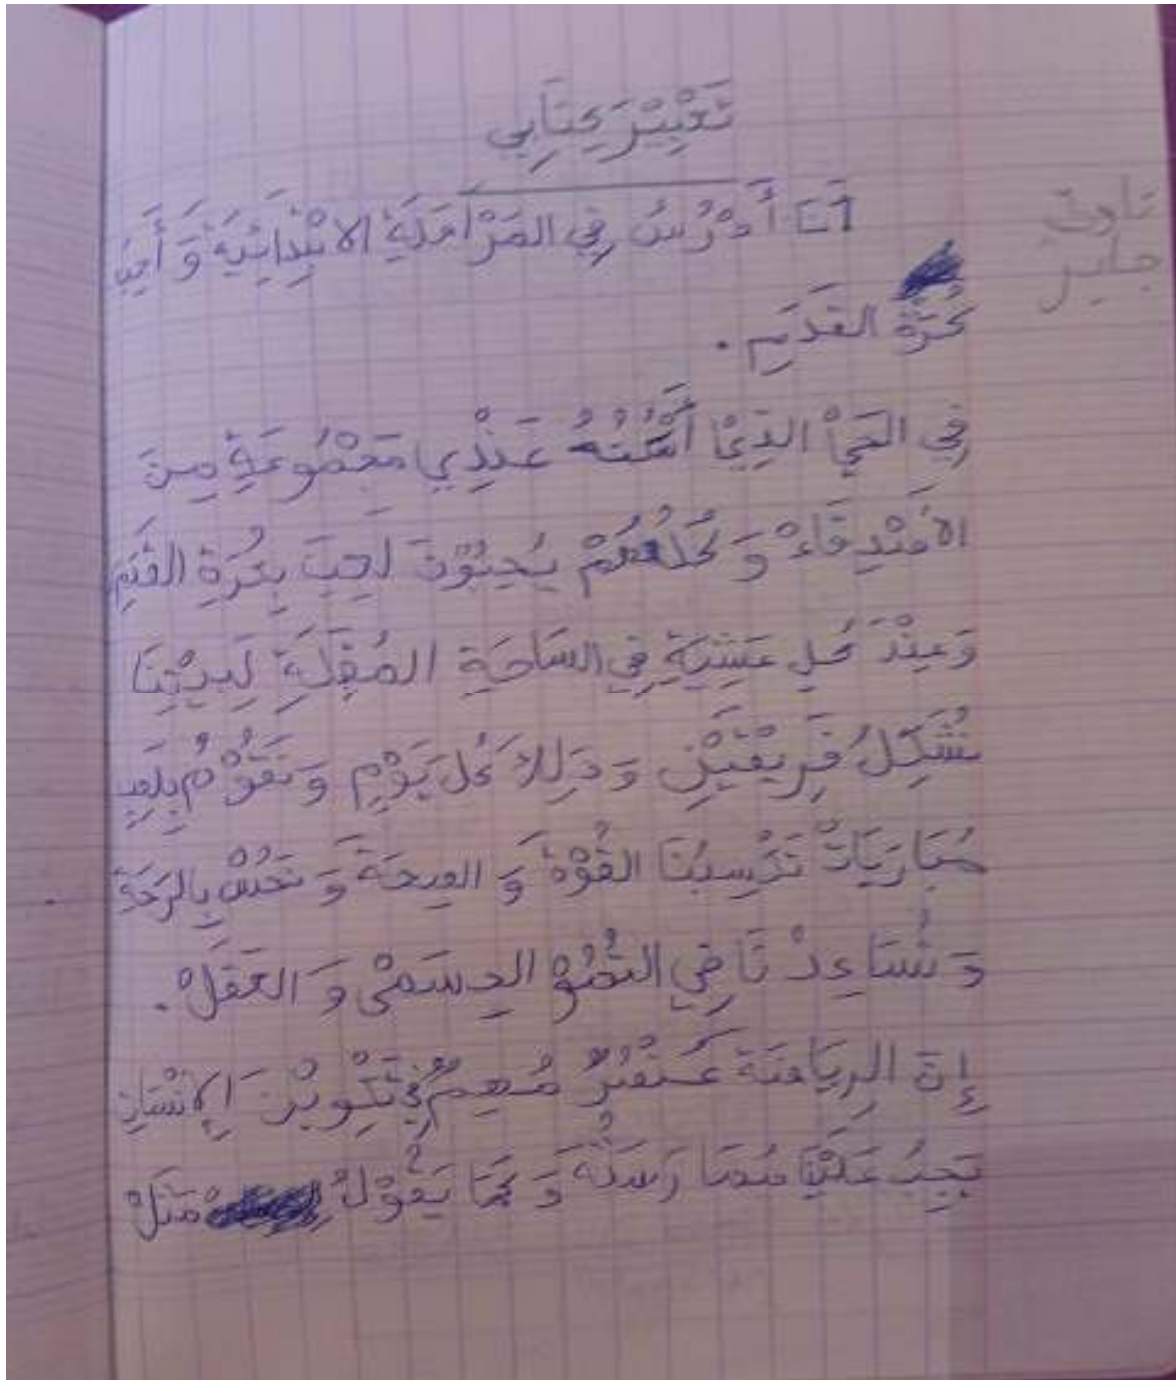 تَعْبِيْر كِتَابِي
أَنَا أَدْرُسُ فِي المَرْاحَلَةِ الابْتِدَائِيَة وَ أُحِبُ
كُرَةُ القَدَمِ .
فِي الحَيْ الذِيْ أَسْكُنُهُ عَنْدِي مَجْمُوعَةٍ مِنَ
الأصْدِقَاءْ وَ كُلُهُمْ يُحِبُوْنَ لَعِبَ بِكُرَةِ القَدَمِ
وَعِنْدَ كُلِ عَشِيَةٍ فِي السَاحَةِ المُقَابِلَةِ لِبَيْتِنَا
نُشَكِلُ فَرِيْقَيْنِ وَ دَلِكَ كُلَ يَوْمٍ وَ نَقُوْمُ بِلَعِبِ
مُبَارَيَاتْ تَكْسِبُنَا القُوْةَ وَ الصِحَةَ وَ نَحُسْ بِالرَحَةِ
وَ تُسَاعِدْ نَا فِي النُمُوْ الجِسَمْي وَ العَقَلْ .
إِنَ الرِيَاضَةَ عُنْصُرٌ مُهِمٌ فِي تَكْوِيْنَ الإِنْسَانِ
يَجِبُ عَلَيْنَا مُمَا رَسَتُهَ وَ كَمَا يَقُوْلُ مَثَلْ
جابر